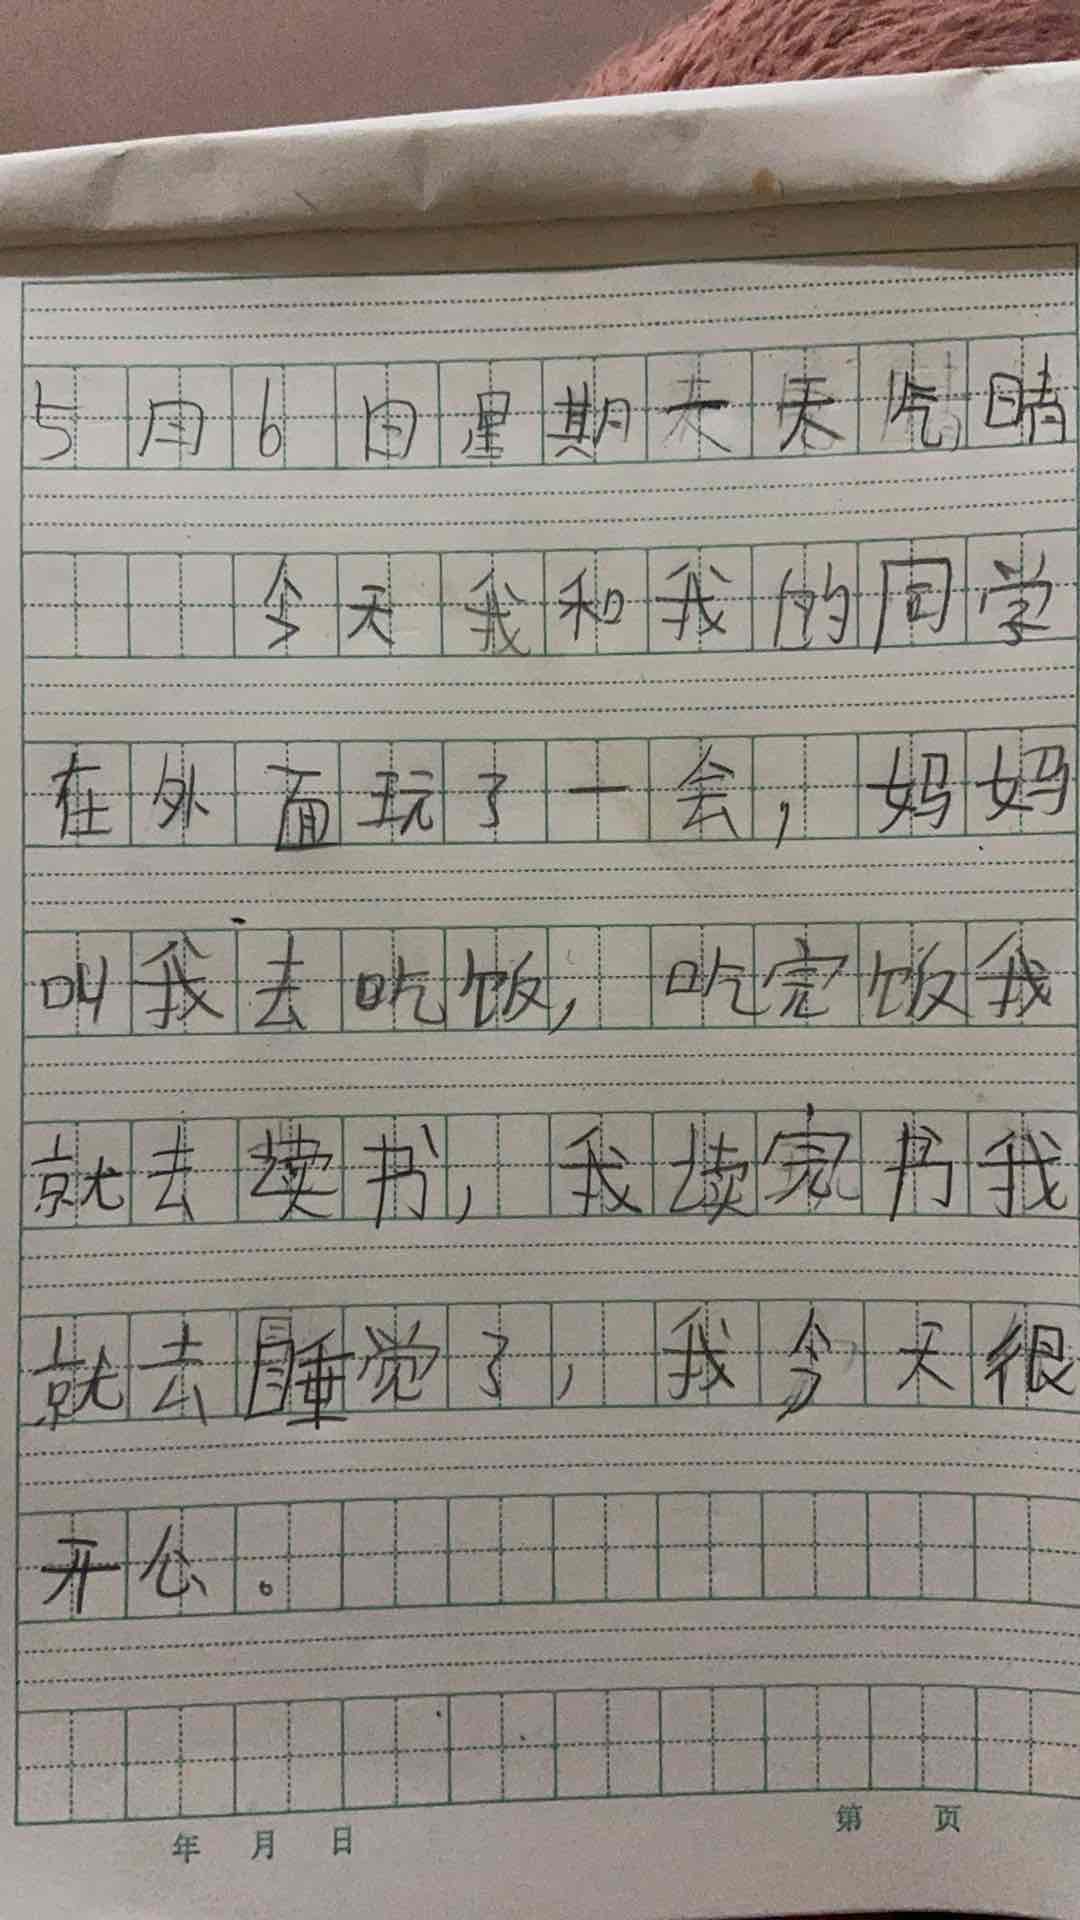 5月6日星期一天气晴
今天我和我的同学
在外面玩了一会，妈妈
叫我去吃饭，吃完饭我
就去读书，我读完书我
就去睡觉了，我今天很
开心。
年 月 日 第 页